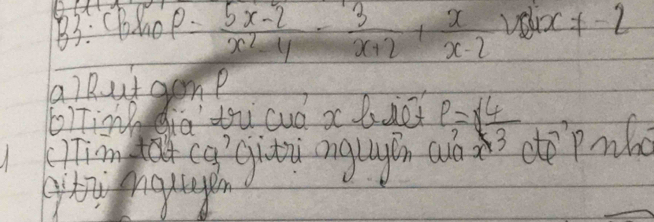 B3: Cho P = \frac{5x-2}{x²-4} - \frac{3}{x+2} + \frac{x}{x-2} với x ≠ -2
a) Rút gọn P
b) Tính giá trị của x biết P = \frac{4}{3}
c) Tìm tất cả gitrị nguyên của x để P nhậ
gitrị nguyên